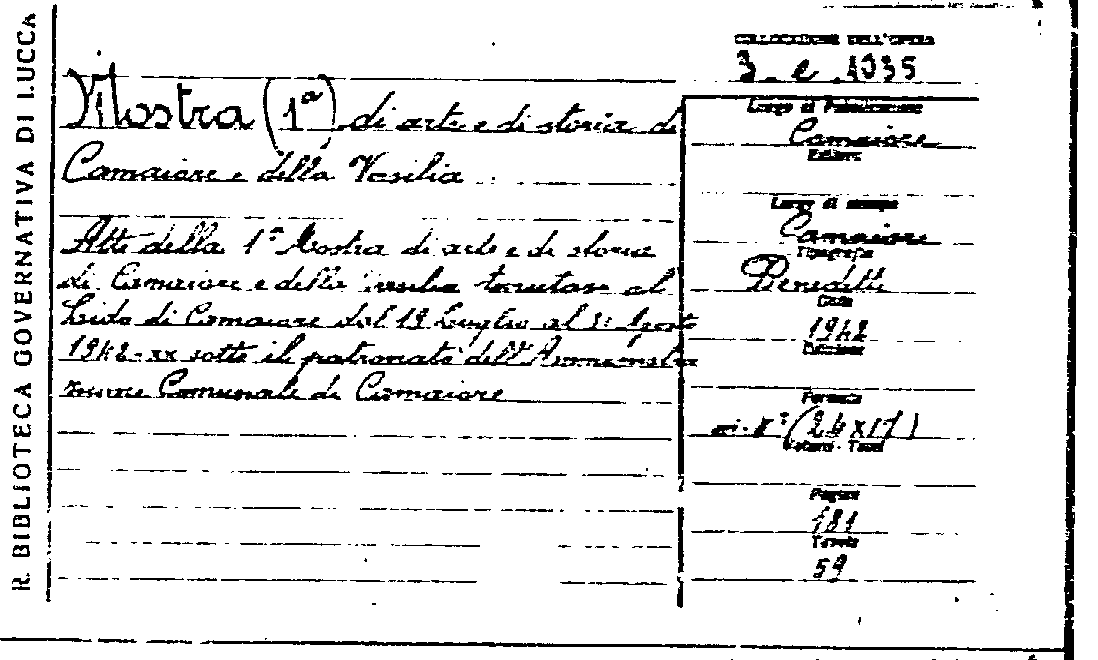 R. BIBLIOTECA GOVERNATIVA DI LUCCA
COLLOCAZIONE DELL'OPERA
3. e. 1035
Mostra (1ª) di arte e di storia di
Camaiore e della Vesilia
Atti della 1ª Mostra di arte e di storia
di Camaiore e della tenutasi al
Lido di Camaiore dal 19 Luglio al 31 Agosto
1942-xx sotto il patronato dell'Amministra
zione Comunale di Camaiore
Luogo di Pubblicazione
Camaiore
Editore
Luogo di stampa
Camaiore
Tipografia
Benedetti
Data
1942
Edizione
Formato
in-8° (24x17)
Volumi - Tomi
Pagine
181
Tavole
59